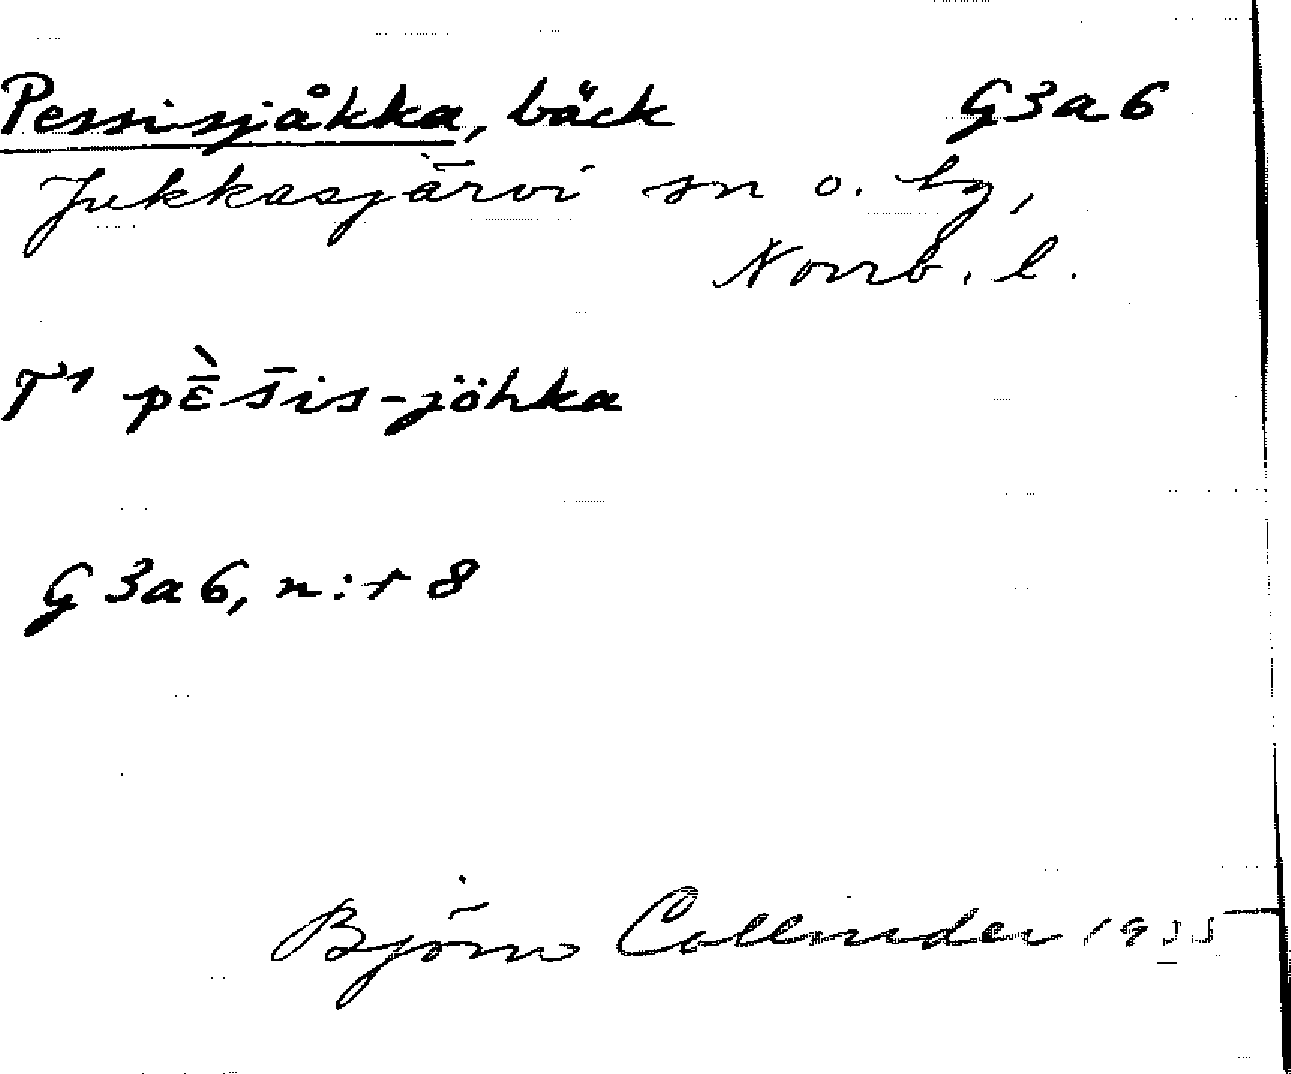 Pessisjåkka, bäck G3a6
Jukkasjärvi sn o. tg,
Norrb. l.
T1 pɛ̄̀s̄is-jöhka
G3a6, n:r 8
Björn Collinder 1935